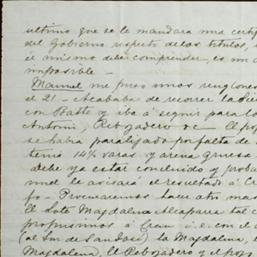 ultimo que se le mandara una certi
del Gobierno respecto de los titulos,
el mismo debe comprender, es un
impossible.—
Manuel me puso unos renglones
el 21 - Acababa de recorer la
con Statte y iba á seguir para lo
Antonio, Rebogadero &c - El po
se habia paralizado por falta de
tenia 14¾ varas y arena gruesa
debe ya estar concluido y proba
nuel le avisará el resultado á
fo - Procuraremos hacer otro mas
El lote Magdalena Alcaparra tal
propusimos á Crau i.e. con el
(al Sur de San José) la Magdalena,
Magdalena, el Rebogadero y el pozo